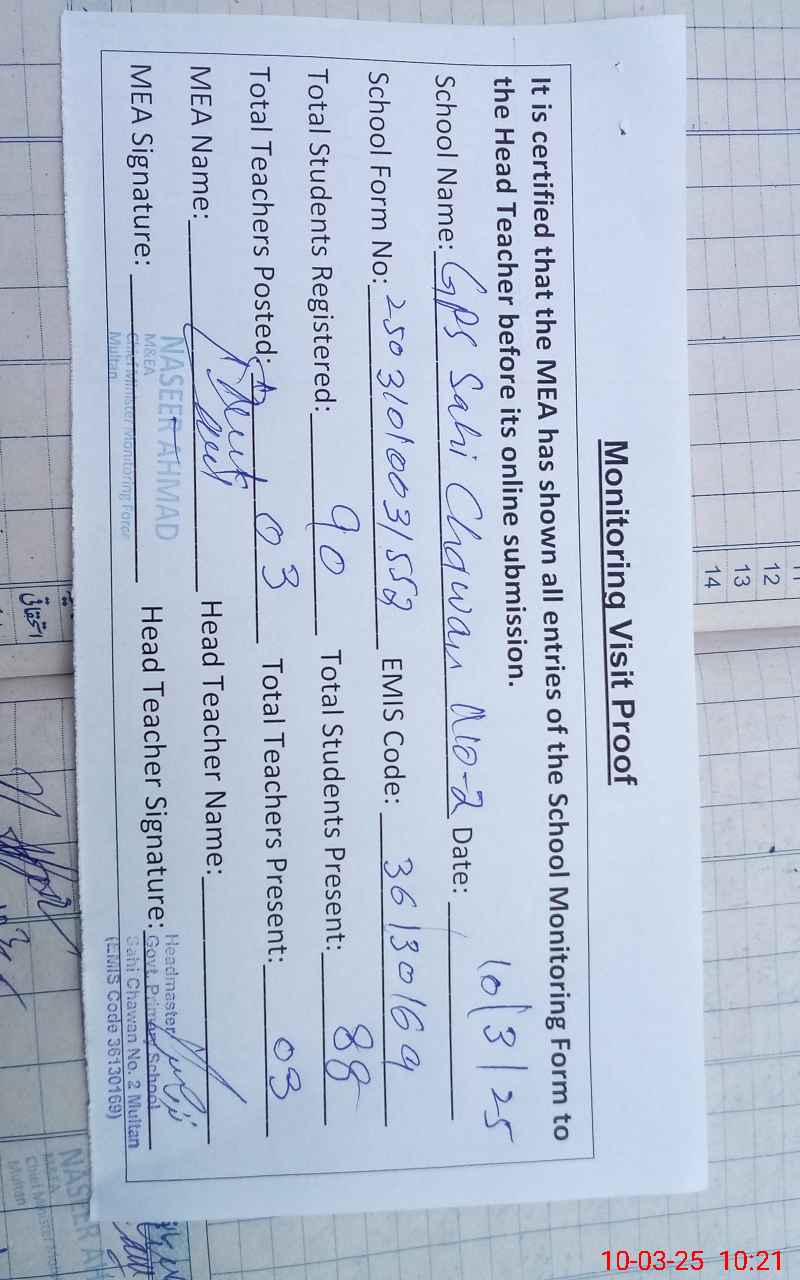 Monitoring Visit Proof
It is certified that the MEA has shown all entries of the School Monitoring Form to
the Head Teacher before its online submission.
School Name: GPS Sahi Chawan No-2 Date: 10/3/25
School Form No: 25031010031552 EMIS Code: 36130169
Total Students Registered: 90 Total Students Present: 88
Total Teachers Posted: 03 Total Teachers Present: 03
MEA Name: Head Teacher Name:
MEA Signature: Head Teacher Signature:
NASEER AHMAD
M&EA
Chief Minister Monitoring Force
Multan
Headmaster
Govt. Primary School
Sahi Chawan No. 2 Multan
(EMIS Code 36130169)
12
13
14
NASEER AH
M&EA
Multan
10-03-25 10:21